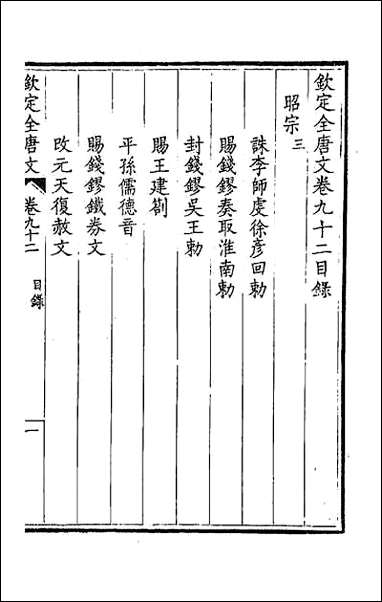 欽定全唐文卷九十二目錄
昭宗三
誅李師虔徐彥回勅
賜錢鏐奏取淮南勅
封錢鏐吳王勅
賜王建劄
平孫儒德音
賜錢鏐鐵券文
改元天復赦文
欽定全唐文 卷九十二 目錄 一